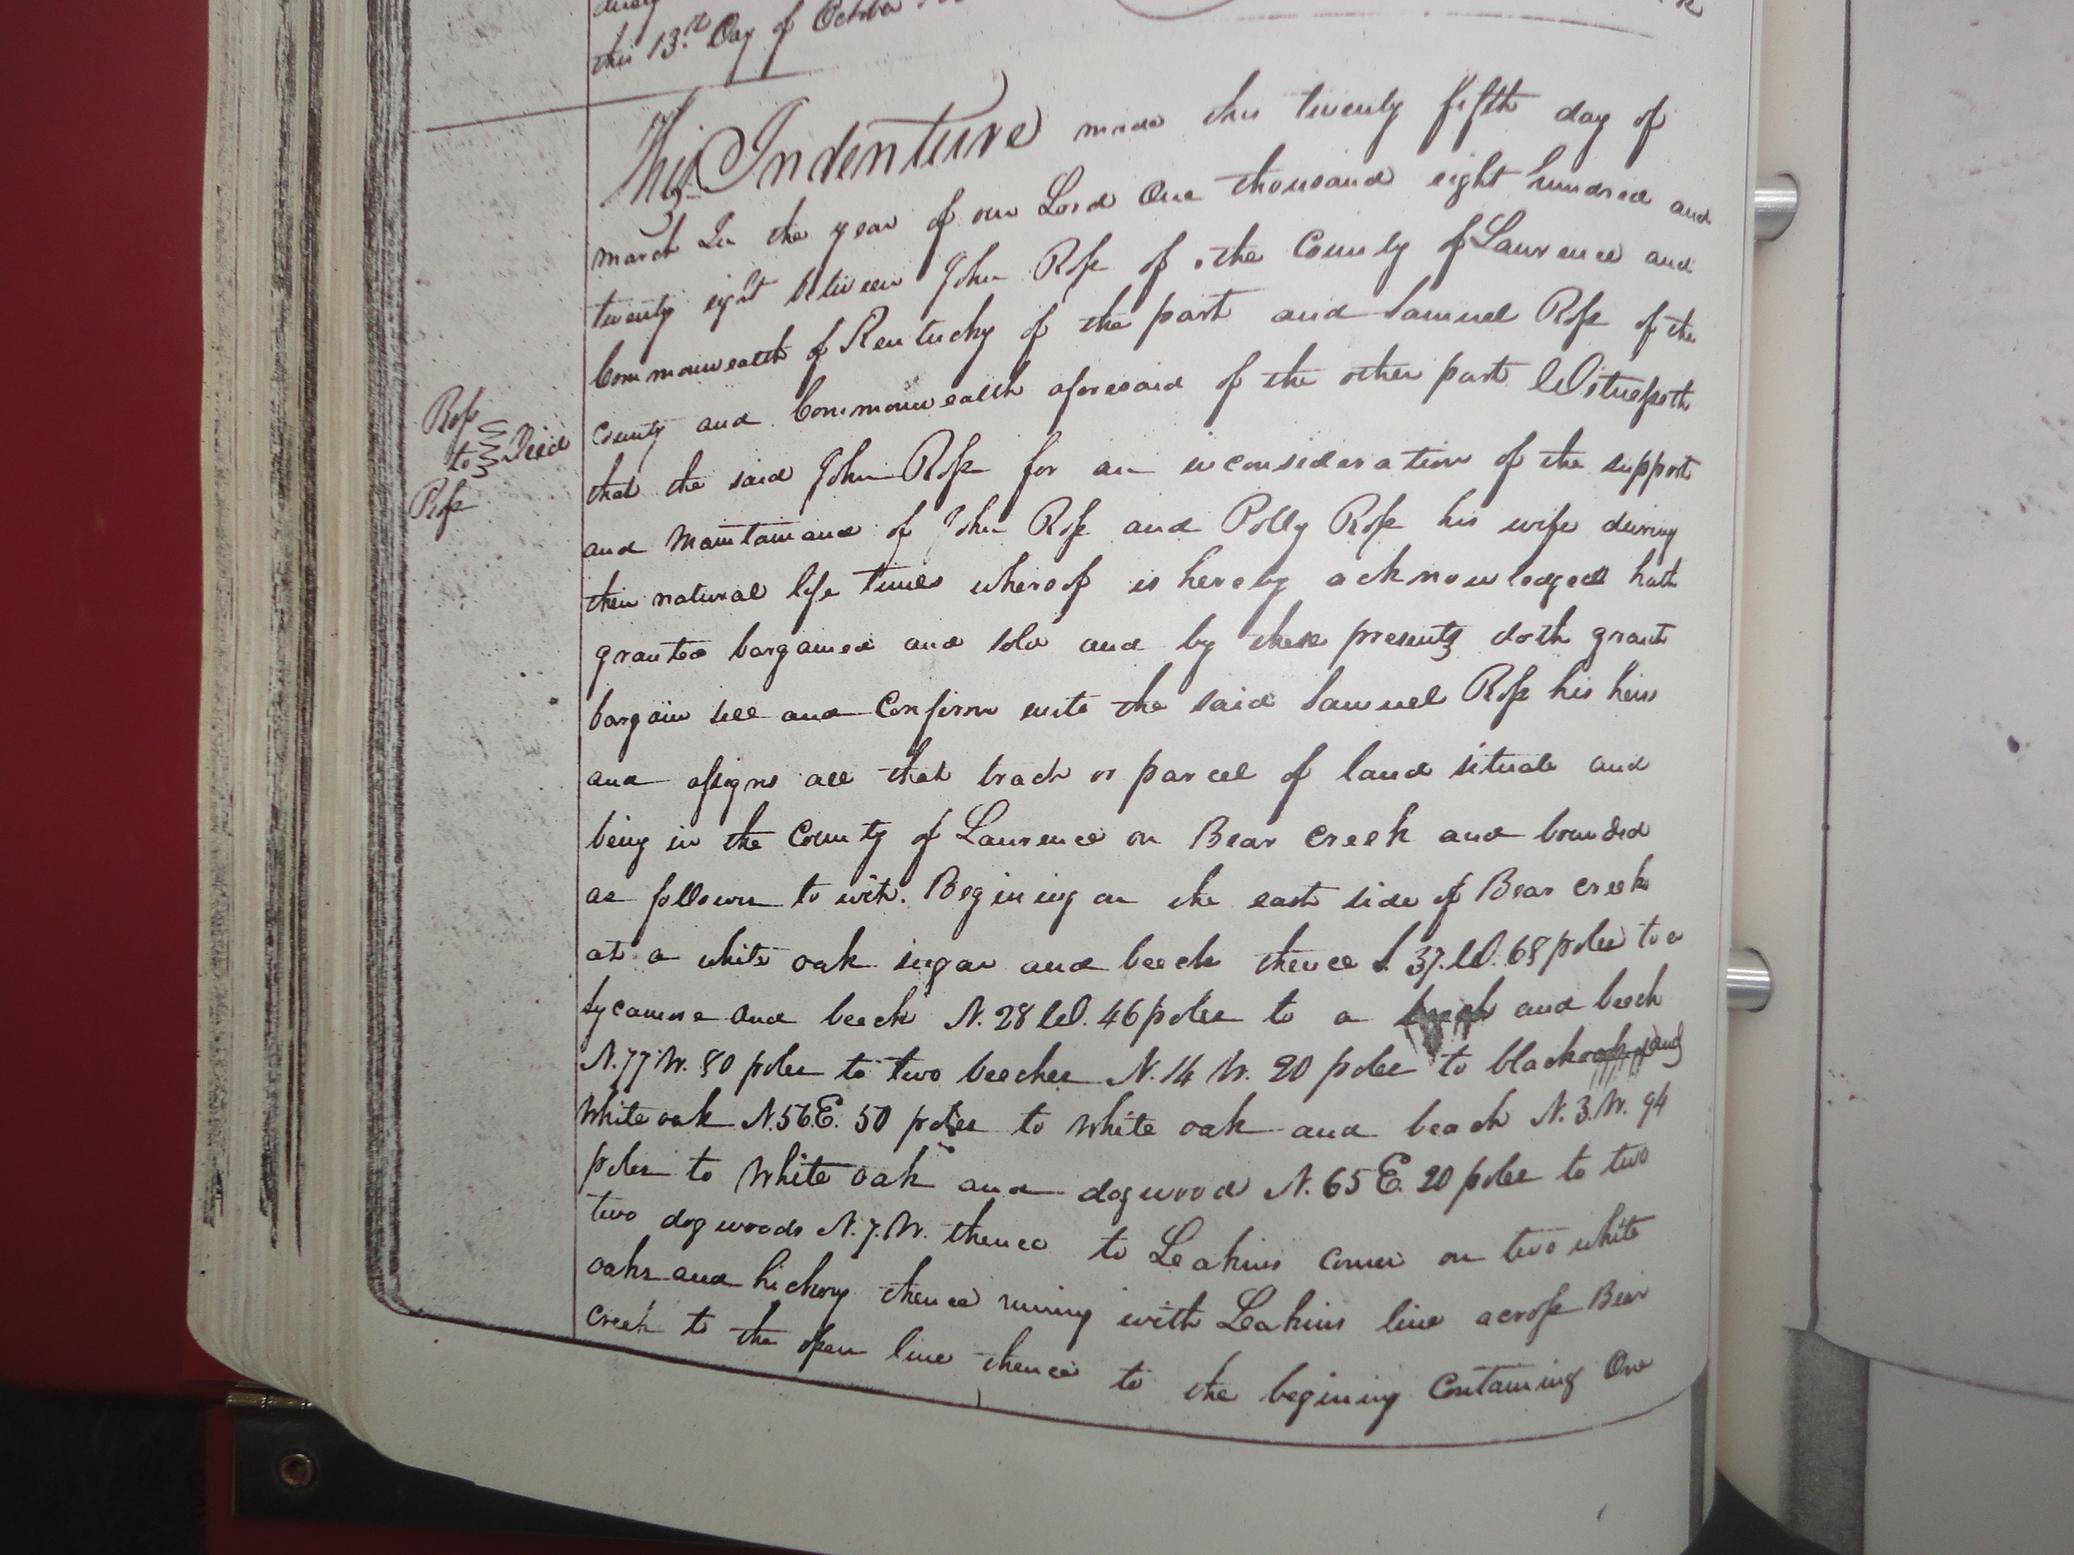 this 13th Day of October
This Indenture made this twenty fifth day of
march In the year of our Lord One thousand eight hundred and
twenty eight between John Ross of the County of Laurence and
Commonwealth of Kentucky of the part and Samuel Ross of the
County and Commonwealth aforesaid of the other part Witnesseth
Ross
to Deed
Ross
that the said John Ross for an inconsideration of the support
and Maintainance of John Ross and Polly Ross his wife during
their natural life times whereof is hereby acknowledged hath
granted bargained and sold and by these presents doth grant
bargain sell and Confirm unto the said Samuel Ross his heirs
and assigns all that track or parcel of land situate and
being in the County of Laurence on Bear Creek and bounded
as follows to wit. Begining on the east side of Bear creek
at a white oak sugar and beech thence S. 37. W. 68 poles to a
Sycamore and beech N. 28 W. 46 poles to a and beech
N. 77 W. 80 poles to two beeches N. 14 W. 20 poles to black and
White oak N. 56 E. 50 poles to White oak and beach N. 3. W. 94
poles to White oak and dogwood N. 65 E. 20 poles to two
two dogwoods N. 7. W. thence to Leakins corner on two white
oaks and hickory thence runing with Leakins line across Bear
Creek to the open line thence to the begining Containing One